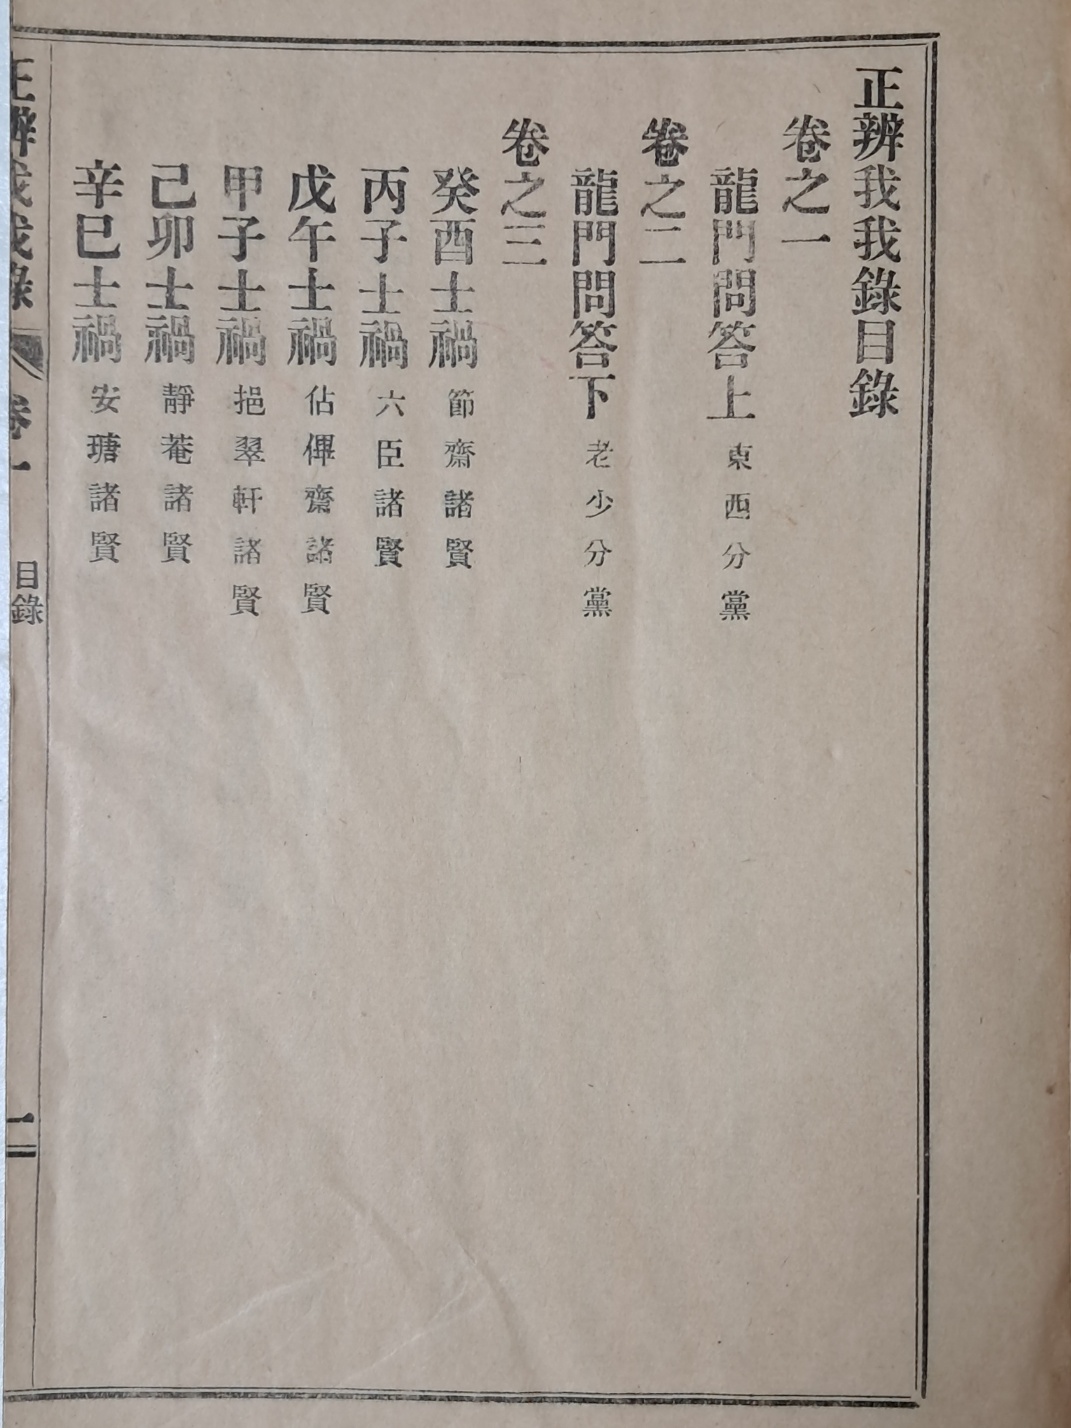 正辨我我錄目錄
卷之一
龍門問答上 東西分黨
卷之二
龍門問答下 老少分黨
卷之三
癸酉士禍 節齋諸賢
丙子士禍 六臣諸賢
戊午士禍 佔俾齋諸賢
甲子士禍 挹翠軒諸賢
己卯士禍 靜菴諸賢
辛巳士禍 安瑭諸賢
正辨我我錄 卷一 目錄 一